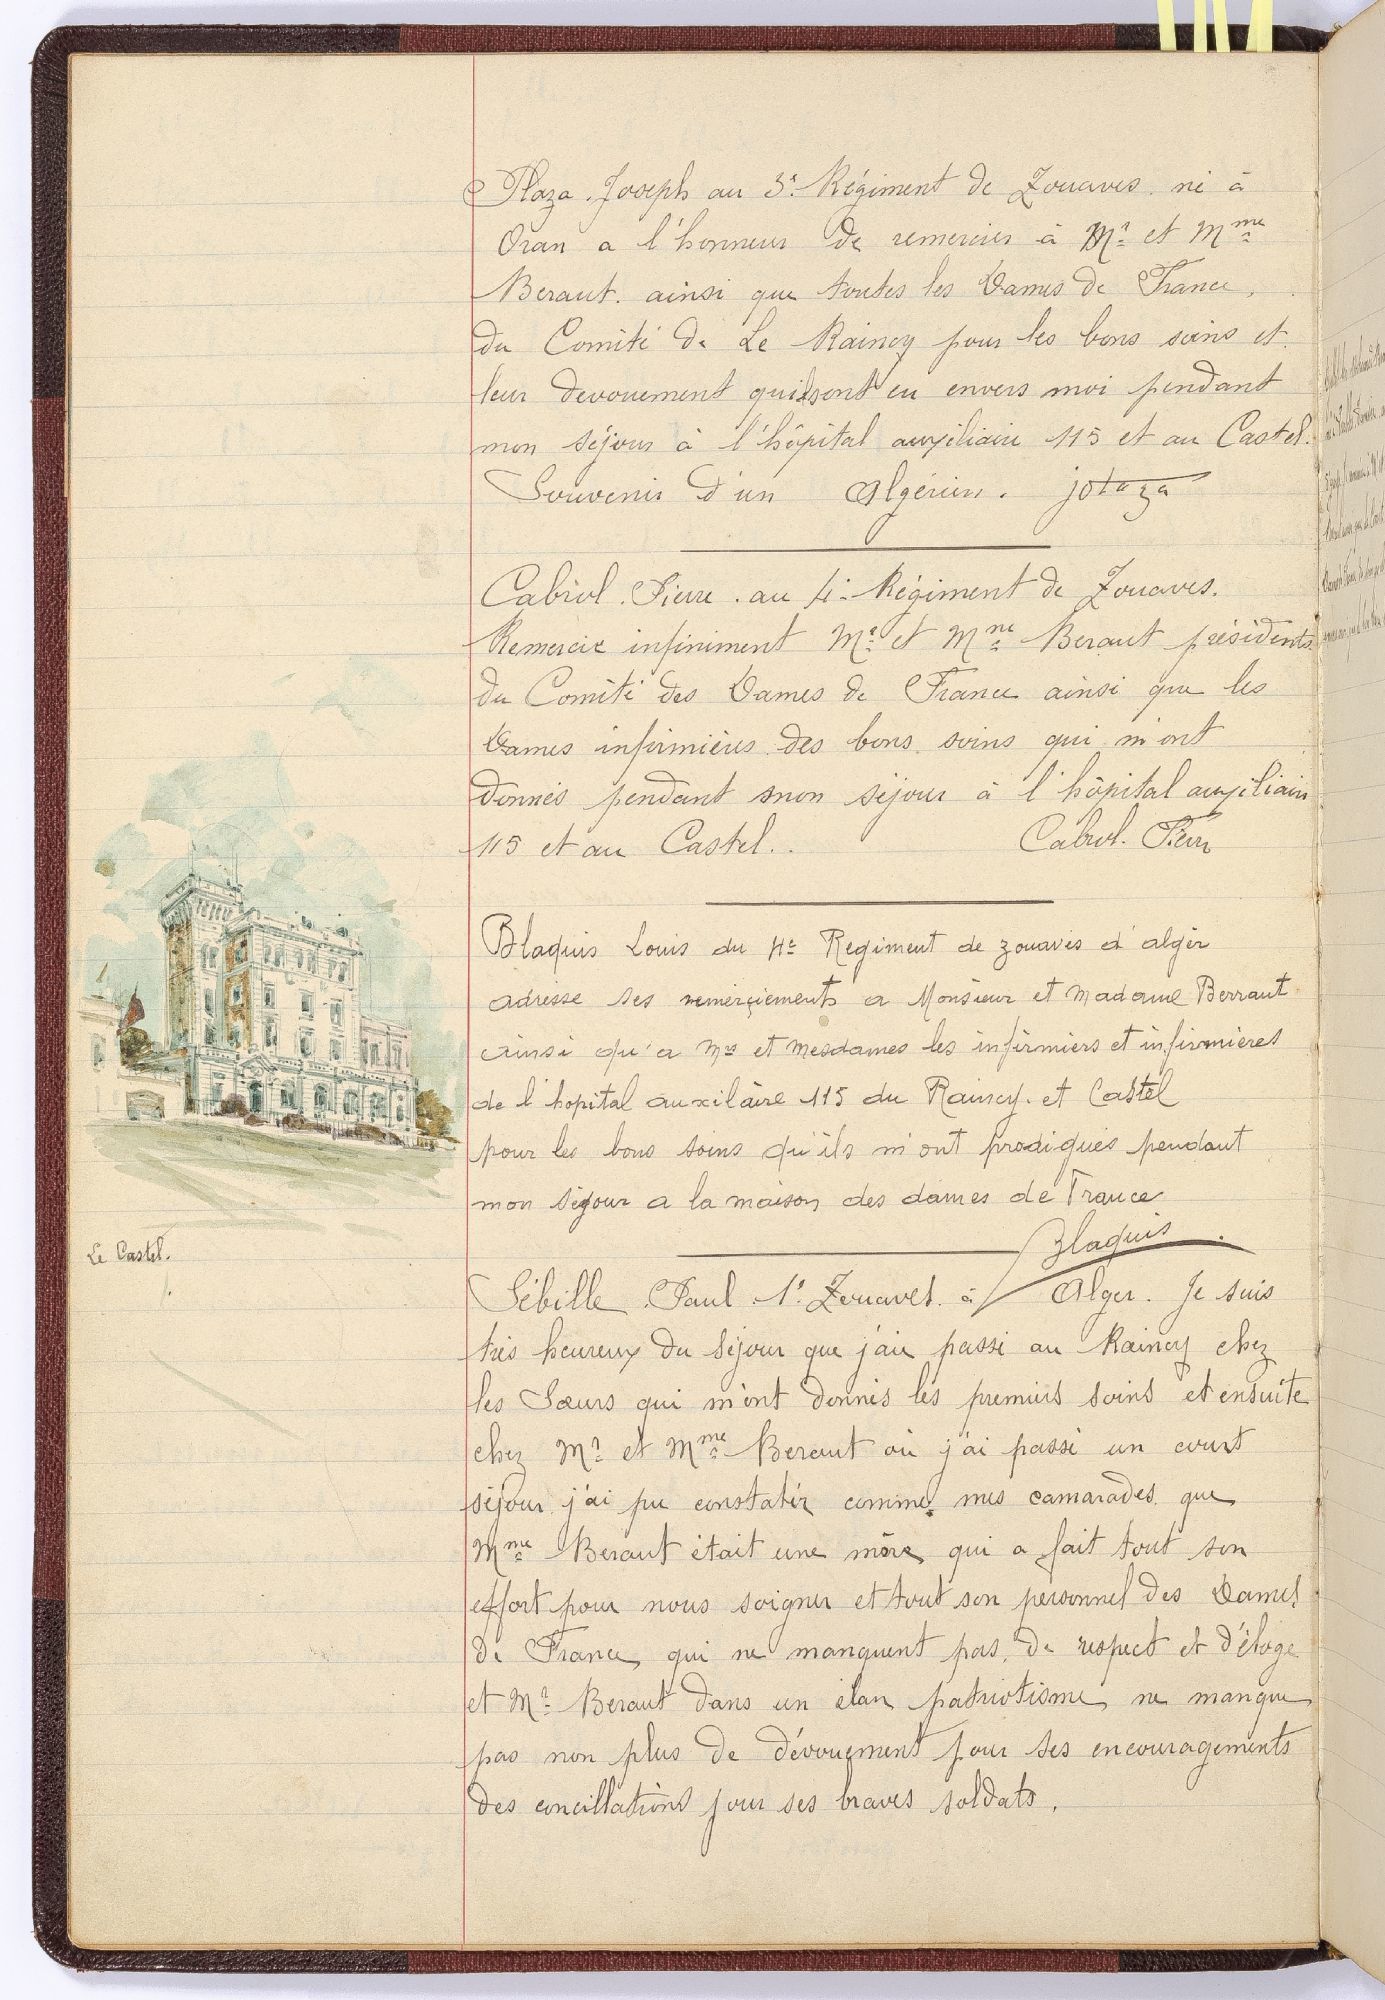 Plaza Joseph au 3e Régiment de Zouaves né à
Oran a l'honneur de remercier à Mr et Mme
Beraut. ainsi que toutes les Dames de France.
du Comité de Le Raincy pour les bons soins et
leur devouement quilsont eu envers moi pendant
mon séjour à l'hôpital auxiliaire 115 et au Castel.
Souvenir d'un Algérien.
Cabrol. Pierre. au 4e Régiment de Zouaves.
Remercie infiniment Mr et Mme Beraut présidents
du Comité des Dames de France ainsi que les
Dames infirmières des bons soins qui m'ont
donnés pendant mon séjour à l'hôpital auxiliaire
115 et au Castel..
Cabrol. Pierre
Blaquis Louis du 4e Regiment de zouaves d'alger
adresse ses remerçiements a Monsieur et Madame Berraut
ainsi qu'a Mrs et Mesdames les infirmiers et infirmières
de l'hopital auxilaire 115 du Raincy. et Castel
pour les bons soins qu'ils m'ont prodigués pendant
mon séjour a la maison des dames de France
Blaquis
Le Castel.
Sébille Paul 1e Zouaves à Alger. Je suis
très heureux du séjour que j'ai passé au Raincy chez
les Sœurs qui m'ont donnés les premiers soins et ensuite
chez Mr et Mme Beraut où j'ai passé un court
séjour j'ai pu constater comme mes camarades que
Mme Beraut était une mère qui a fait tout son
effort pour nous soigner et tout son personnel des Dames
de France qui ne manquent pas de respect et d'éloge
et Mr Beraut dans un élan patriotisme ne manque
pas non plus de dévouement pour ses encouragements
des concillations pour ses braves soldats.